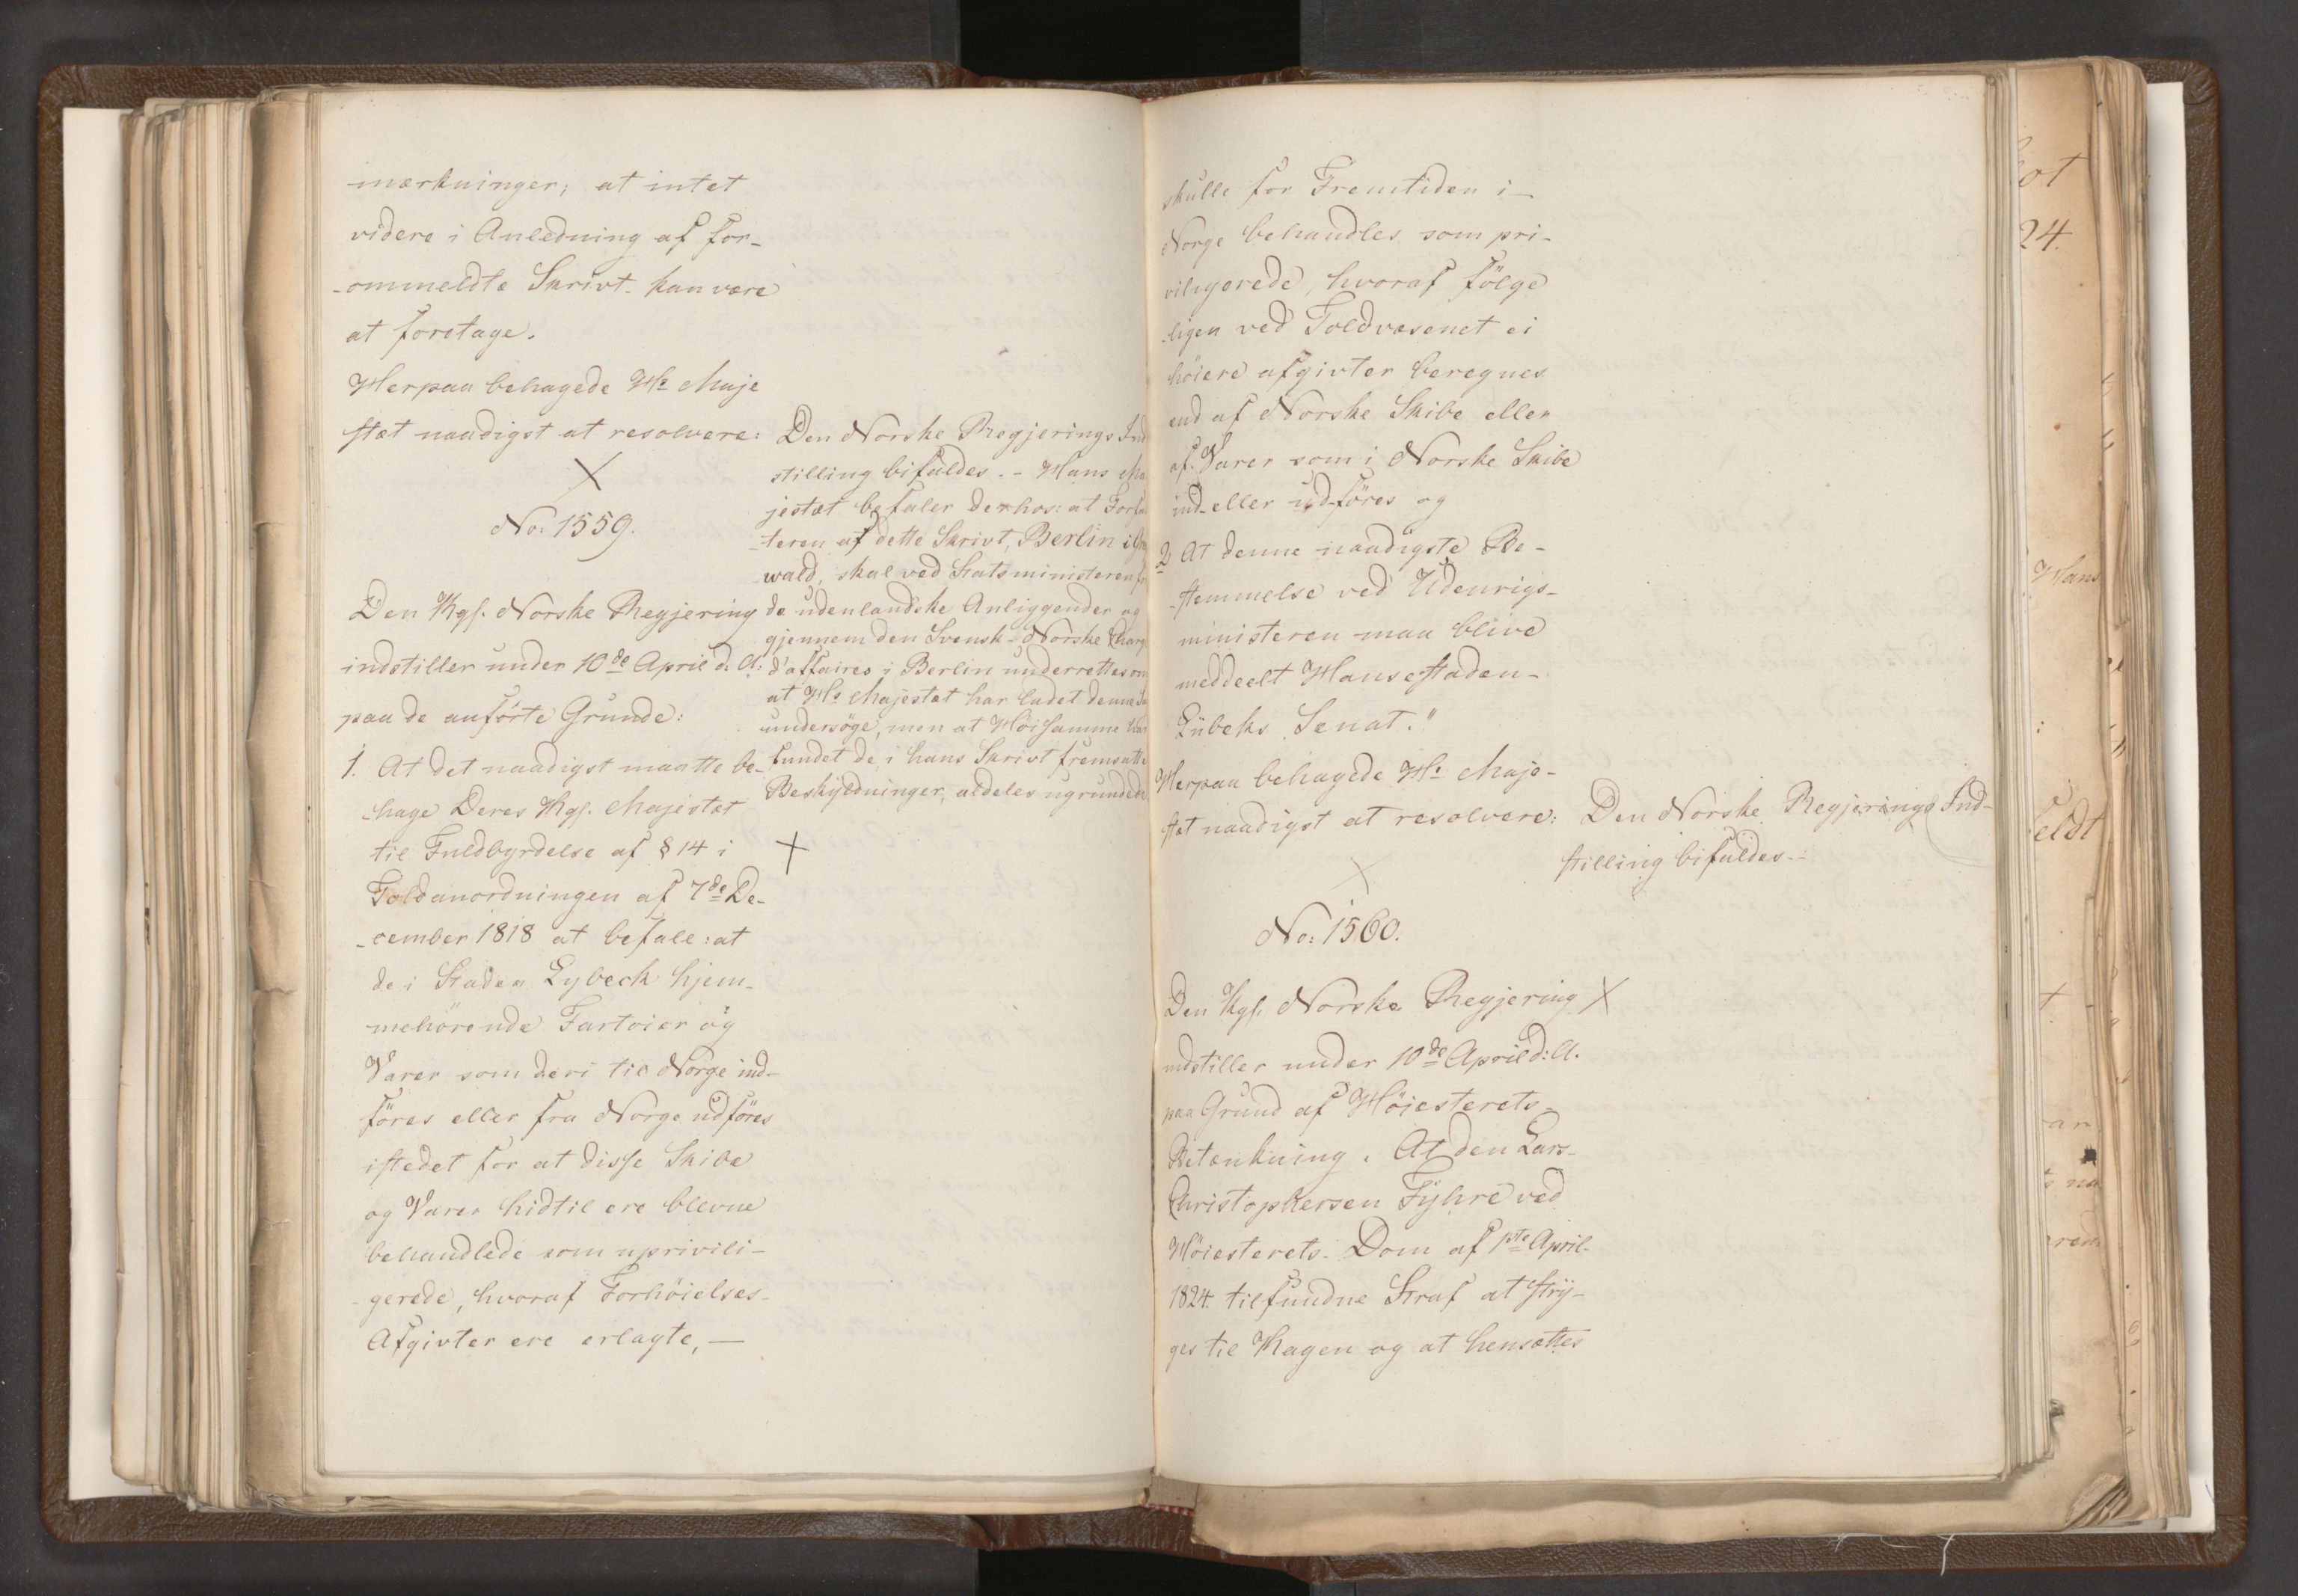 mærkninger; at intet
videre i Anledning af for-
-ommeldte Skrivt kan være
at foretage.
Herpaa behagede Hs Maje
stæt naadigst at resolvere:
Den Norske Regjerings Ind
stilling bifaldes. - Hans Ma
jestæt befaler derhos: at Forfa
-teren af dette Skrivt, Berlin i
wald, skal ved Statsministeren fo
de udenlandske Anliggender og
gjennem den Svensk-Norske Charg
d'affaires i Berlin underrettes om
at Hs Majestæt har ladet denne
undersöge, men at Höisamme har
fundet de i hans Skrivt fremsatte
Beskyldninger, aldeles ugrundede
X
No: 1559.
Den Kgl. Norske Regjering
indstiller under 10de April d. A:
paa de anförte Grunde:
1. At det naadigst maatte be-
-hage Deres Kgl. Majestæt
til Fuldbyrdelse af § 14 i
X
Toldanordningen af 7de De-
-cember 1818 at befale: at
de i Staden Lybeck hjem-
mehörende Fartöier og
Varer som deri til Norge ind-
föres eller fra Norge udföres
istedet for at disse Skibe
og Varer hidtil ere blevne
behandlede som uprivili-
-gerede, hvoraf Forhöielses-
Afgivter ere erlagte, —
skulle for Fremtiden i -
Norge behandles som pri-
viligerede, hvoraf fölge
-ligen ved Toldvæsenet ei
höiere afgivter beregnes
end af Norske Skibe eller
af Varer som i Norske Skibe
ind- eller udföres og
2 At denne naadigste Be-
-stemmelse ved Udenrigs-
ministeren maa blive
meddeelt Hansestaden-
Lübeks Senat."
Herpaa behagede Hs Maje-
stæt naadigst at resolvere:
Den Norske Regjerings Ind-
stilling bifaldes. -
X
No: 1560.
Den Kgl. Norske Regjering X
indstiller under 10de April d: A.
paa Grund af Höiesterets-
Betænkning. At den Lars-
Christophersen Fyhre ved
Höiesterets- Dom af 1ste April-
1824. tilfundne Straf at stry-
ges til Kagen og at hensættes
ot
24.
Hans
feldt